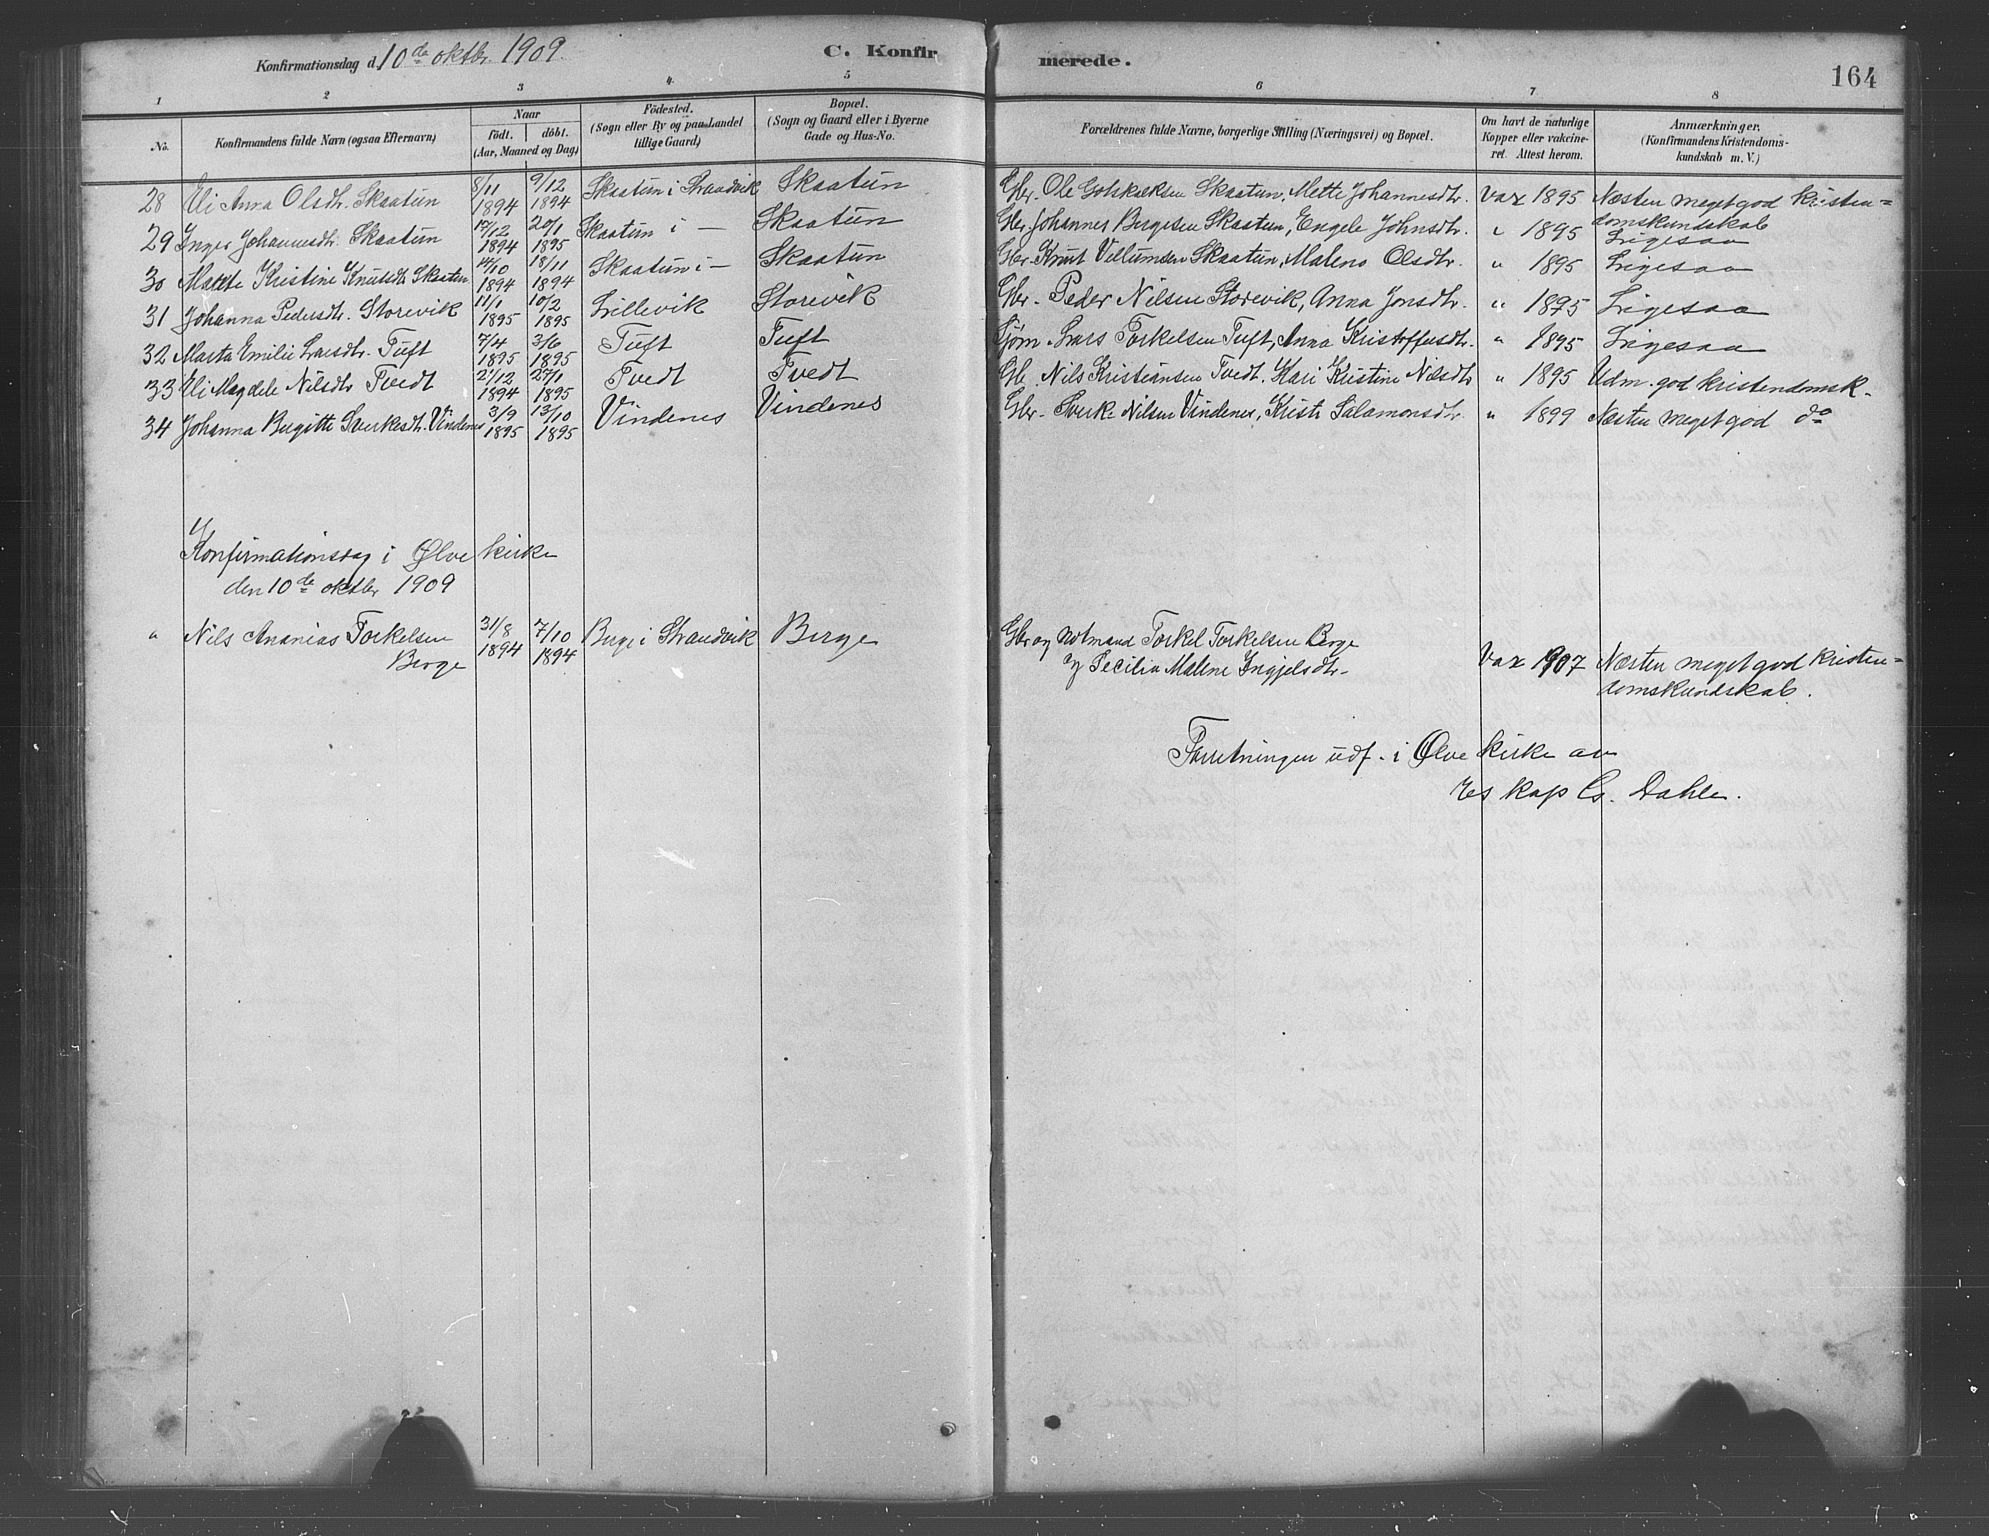 Konfirmationsdag d. 10de oktbr. 1909.
C. Konfirmerede.
164
1 2 3 4. 5 6 7 8
No.
Konfirmandens fulde Navn (ogsaa Efternavn)
Naar
födt. döbt.
(Aar, Maaned og Dag)
Födested.
(Sogn eller By og paa Landet
tillige Gaard)
Bopæl.
(Sogn og Gaard eller i Byerne
Gade og Hus-No.
Forældrenes fulde Navne, borgerlige Stilling (Næringsvei) og Bopæl.
Om havt de naturlige
Kopper eller vakcine-
ret. Attest herom.
Anmærkninger.
(Konfirmandens Kristendoms-
kundskab m. V.)
28 Eli Anna Olsdtr. Skaatun 8/11 1894 9/12 1894 Skaatun i Strandvik Skaatun Gbr. Ole Gotskalksen Skaatun, Mette Johannesdtr. Vax 1895 Næsten meget god kristen=
domskundskab
29 Inger Johannesdtr. Skaatun 17/12 1894 20/1 1895 Skaatun i — Skaatun Gbr. Johannes Børgesen Skaatun, Engele Johnsdtr. " 1895 Ligesaa
30 Mette Kristine Knutsdtr Skaatun 14/10 1894 18/11 1894 Skaatun i — Skaatun Gbr. Knut Villumsen Skaatun, Malene Olsdtr. " 1895 Ligesaa
31 Johanna Pedersdtr. Storevik 11/1 1895 10/2 1895 Lillevik Storevik Gbr. Peder Nilsen Storevik, Anna Jonsdtr. " 1895 Ligesaa
32 Marta Emilie Larsdtr. Tuft 7/4 1895 3/6 1895 Tuft Tuft Lars Torkelsen Tuft, Anna Kristoffersdtr. " 1895 Ligesaa
33 Eli Magdele Nilsdtr Tvedt 21/12 1894 27/1 1895 Tvedt Tvedt Gb. Nils Kristiansen Tvedt. Kari Kristine Nilsdtr " 1895 Udm. god kristendomsk.
34 Johanna Birgitte Sverkesdtr. Vindenes 3/9 1895 13/10 1895 Vindenes Vindenes Gbr. Sverke Nilsen Vindenes, Kristi Salamonsdtr. " 1899 Næsten meget god do
Konfirmationsdag i Ølve kirke
den 10de oktbr 1909
" Nils Ananias Torkelsen 31/8 7/10 Berge i Strandvik Berge Gbr og notmand Torkel Torkelsen Berge
Berge 1894 1894 og Cecilia Malene Ingjelsdtr. Vax 1907 Næsten meget god kristen=
domskundskab.
Forretningen udf. i Ølve kirke av
res kap Cs. Dahle.